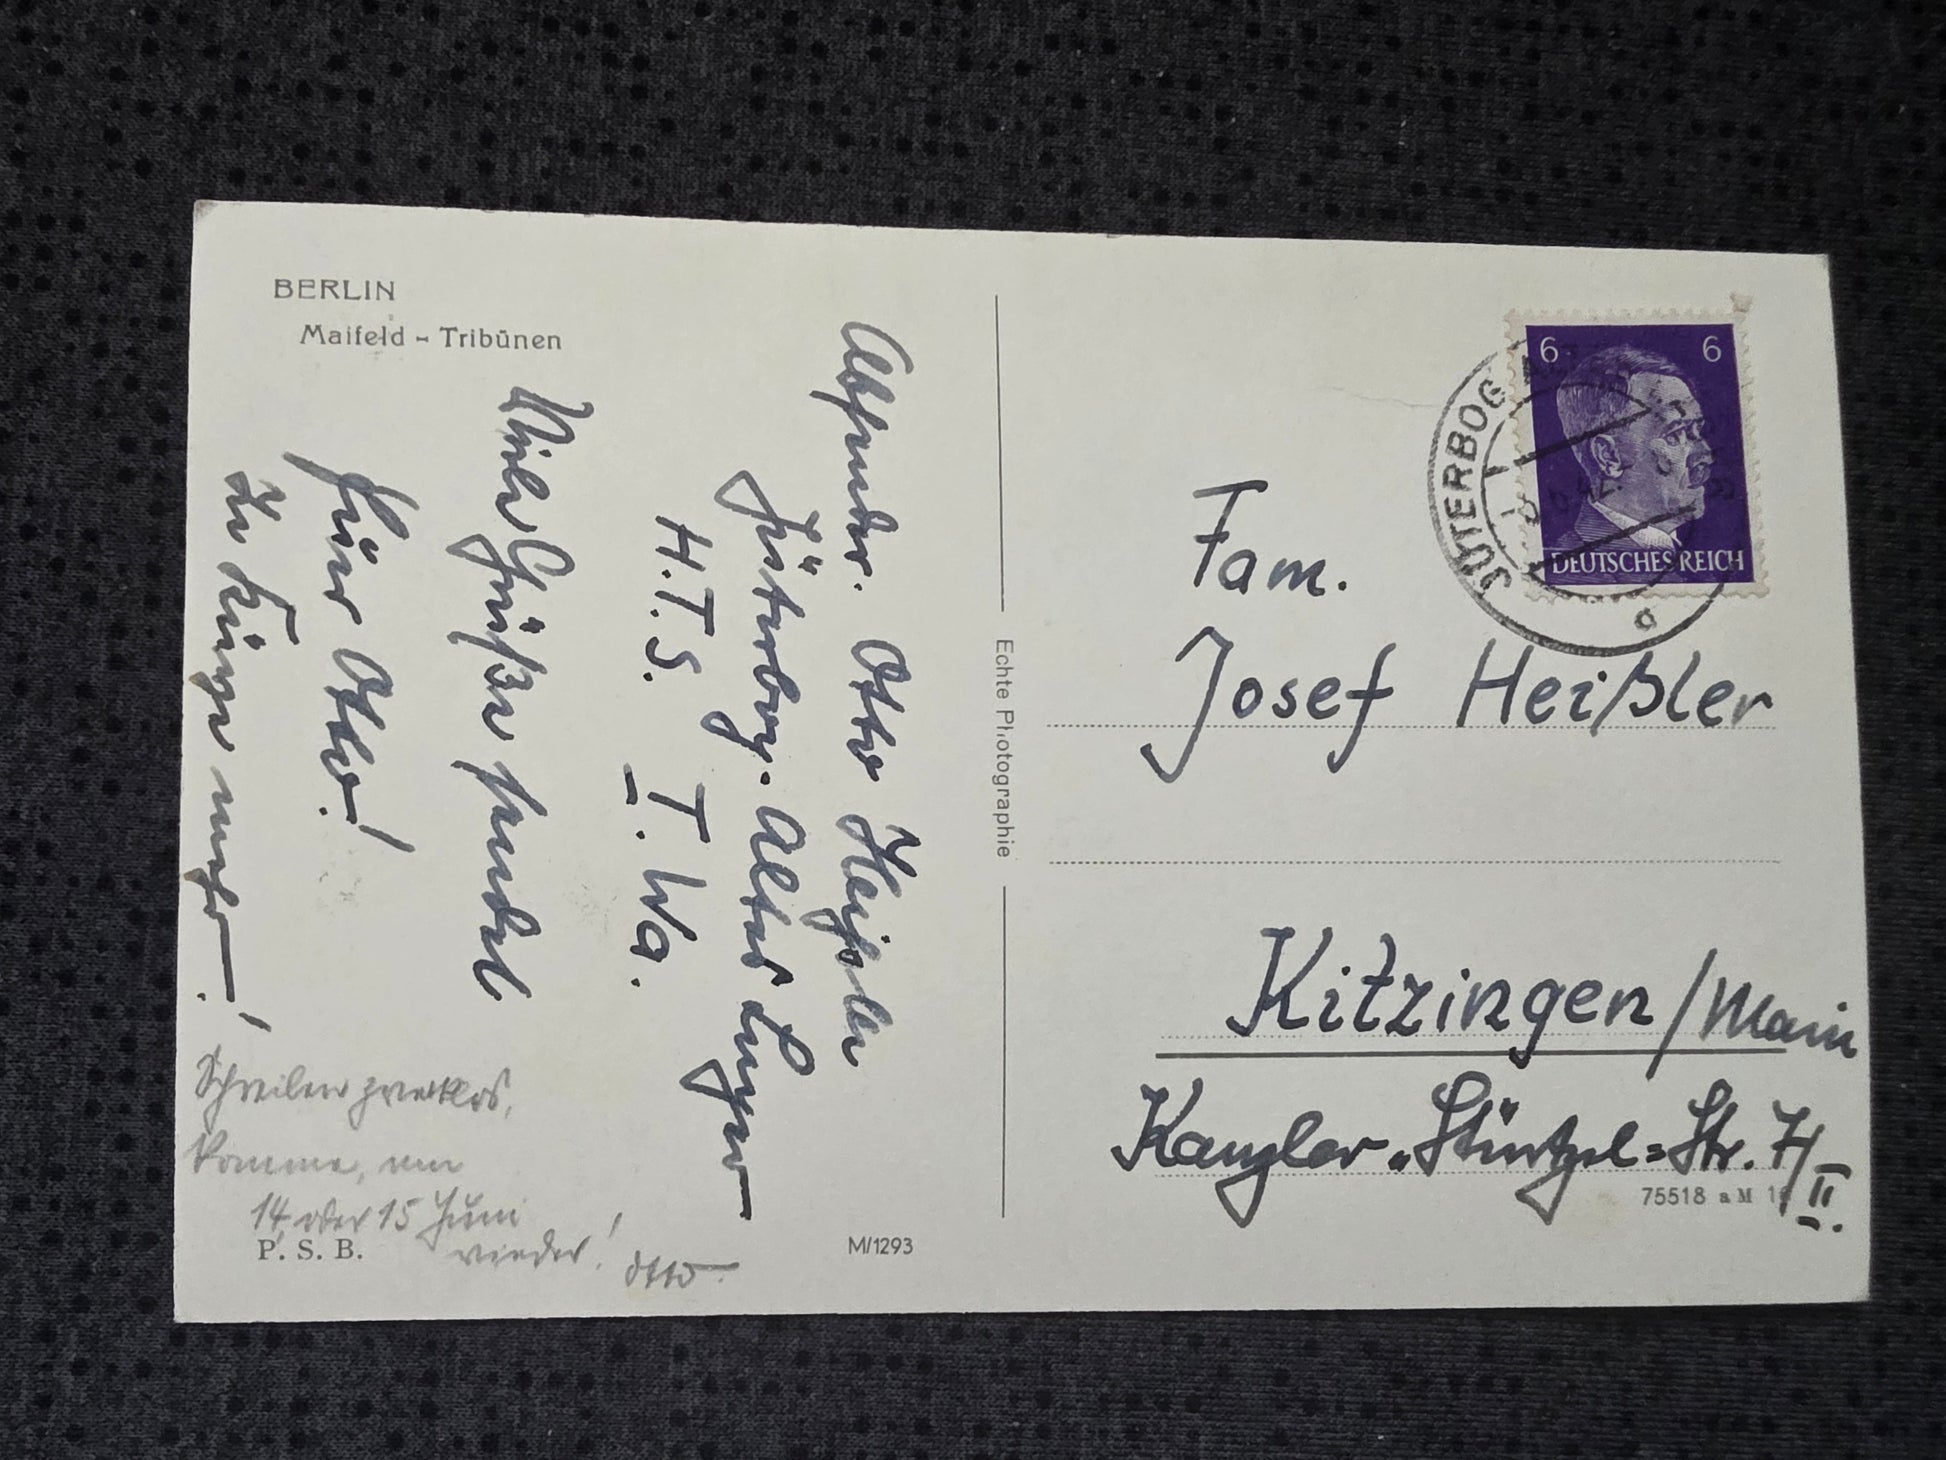 BERLIN
Maifeld - Tribünen
Absender. Otto Heißler
Jüterbog. Altes Lager
H.T.S. I. Wa.
Viele Grüße sendet
Euer Otto!
In Kürze mehr!
Schreiben zwecklos,
komme, am
14. oder 15 Juni
wieder! Otto.
P. S. B.
M/1293
Echte Photographie
6 6
DEUTSCHES REICH
JÜTERBOG
8.6.42.
a
Fam.
Josef Heißler
Kitzingen/Main
Kanzler-Stürtzel=Str. 7/II.
75518 a M